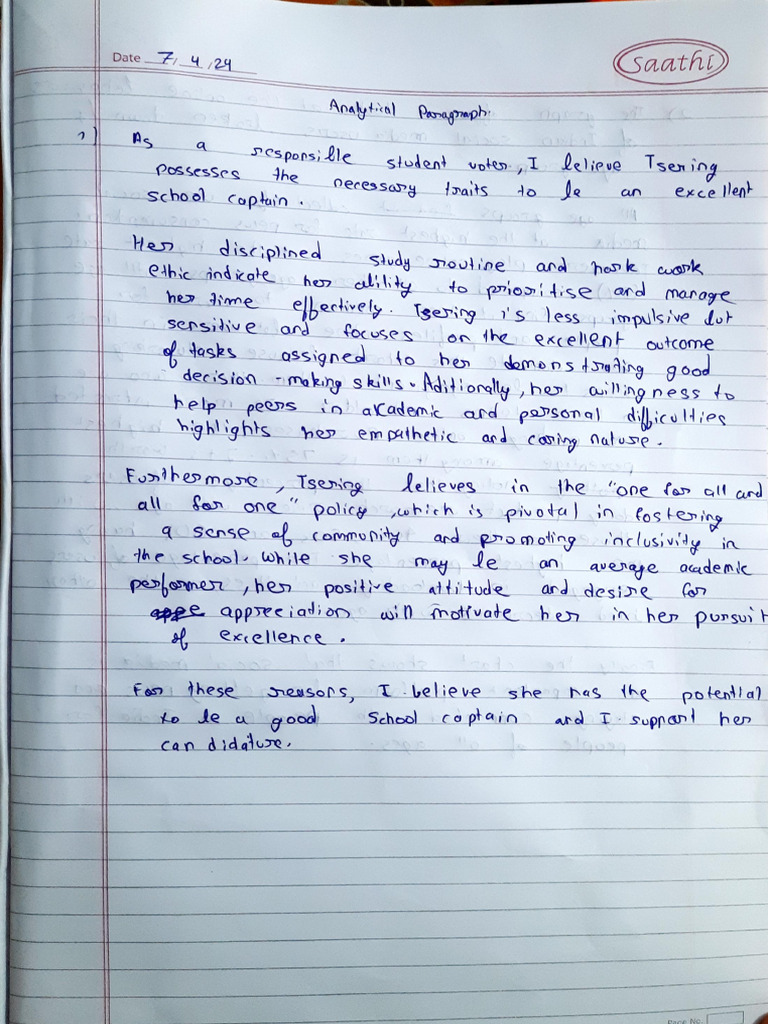 Date 7, 4, 24
saathi
Analytical Paragraph.
1) As a responsible student voter, I believe Tsering
possesses the necessary traits to be an excellent
school captain.
Her disciplined study routine and hork work
ethic indicate her ability to prioritise and manage
her time effectively. Tsering is less impulsive but
sensitive and focuses on the excellent outcome
of tasks assigned to her demonstrating good
decision-making skills. Aditionally, her willingness to
help peers in akademic and personal difficulties
highlights her empathetic and caring nature.
Furthermore, Tsering believes in the "one for all and
all for one" policy, which is pivotal in fostering
a sense of community and promoting inclusivity in
the school. While she may be an average academic
performer, her positive attitude and desire for
appreciation will motivate her in her pursuit
of excellence.
For these reasons, I believe she has the potential
to be a good school captain and I support her
candidature.
Page No.